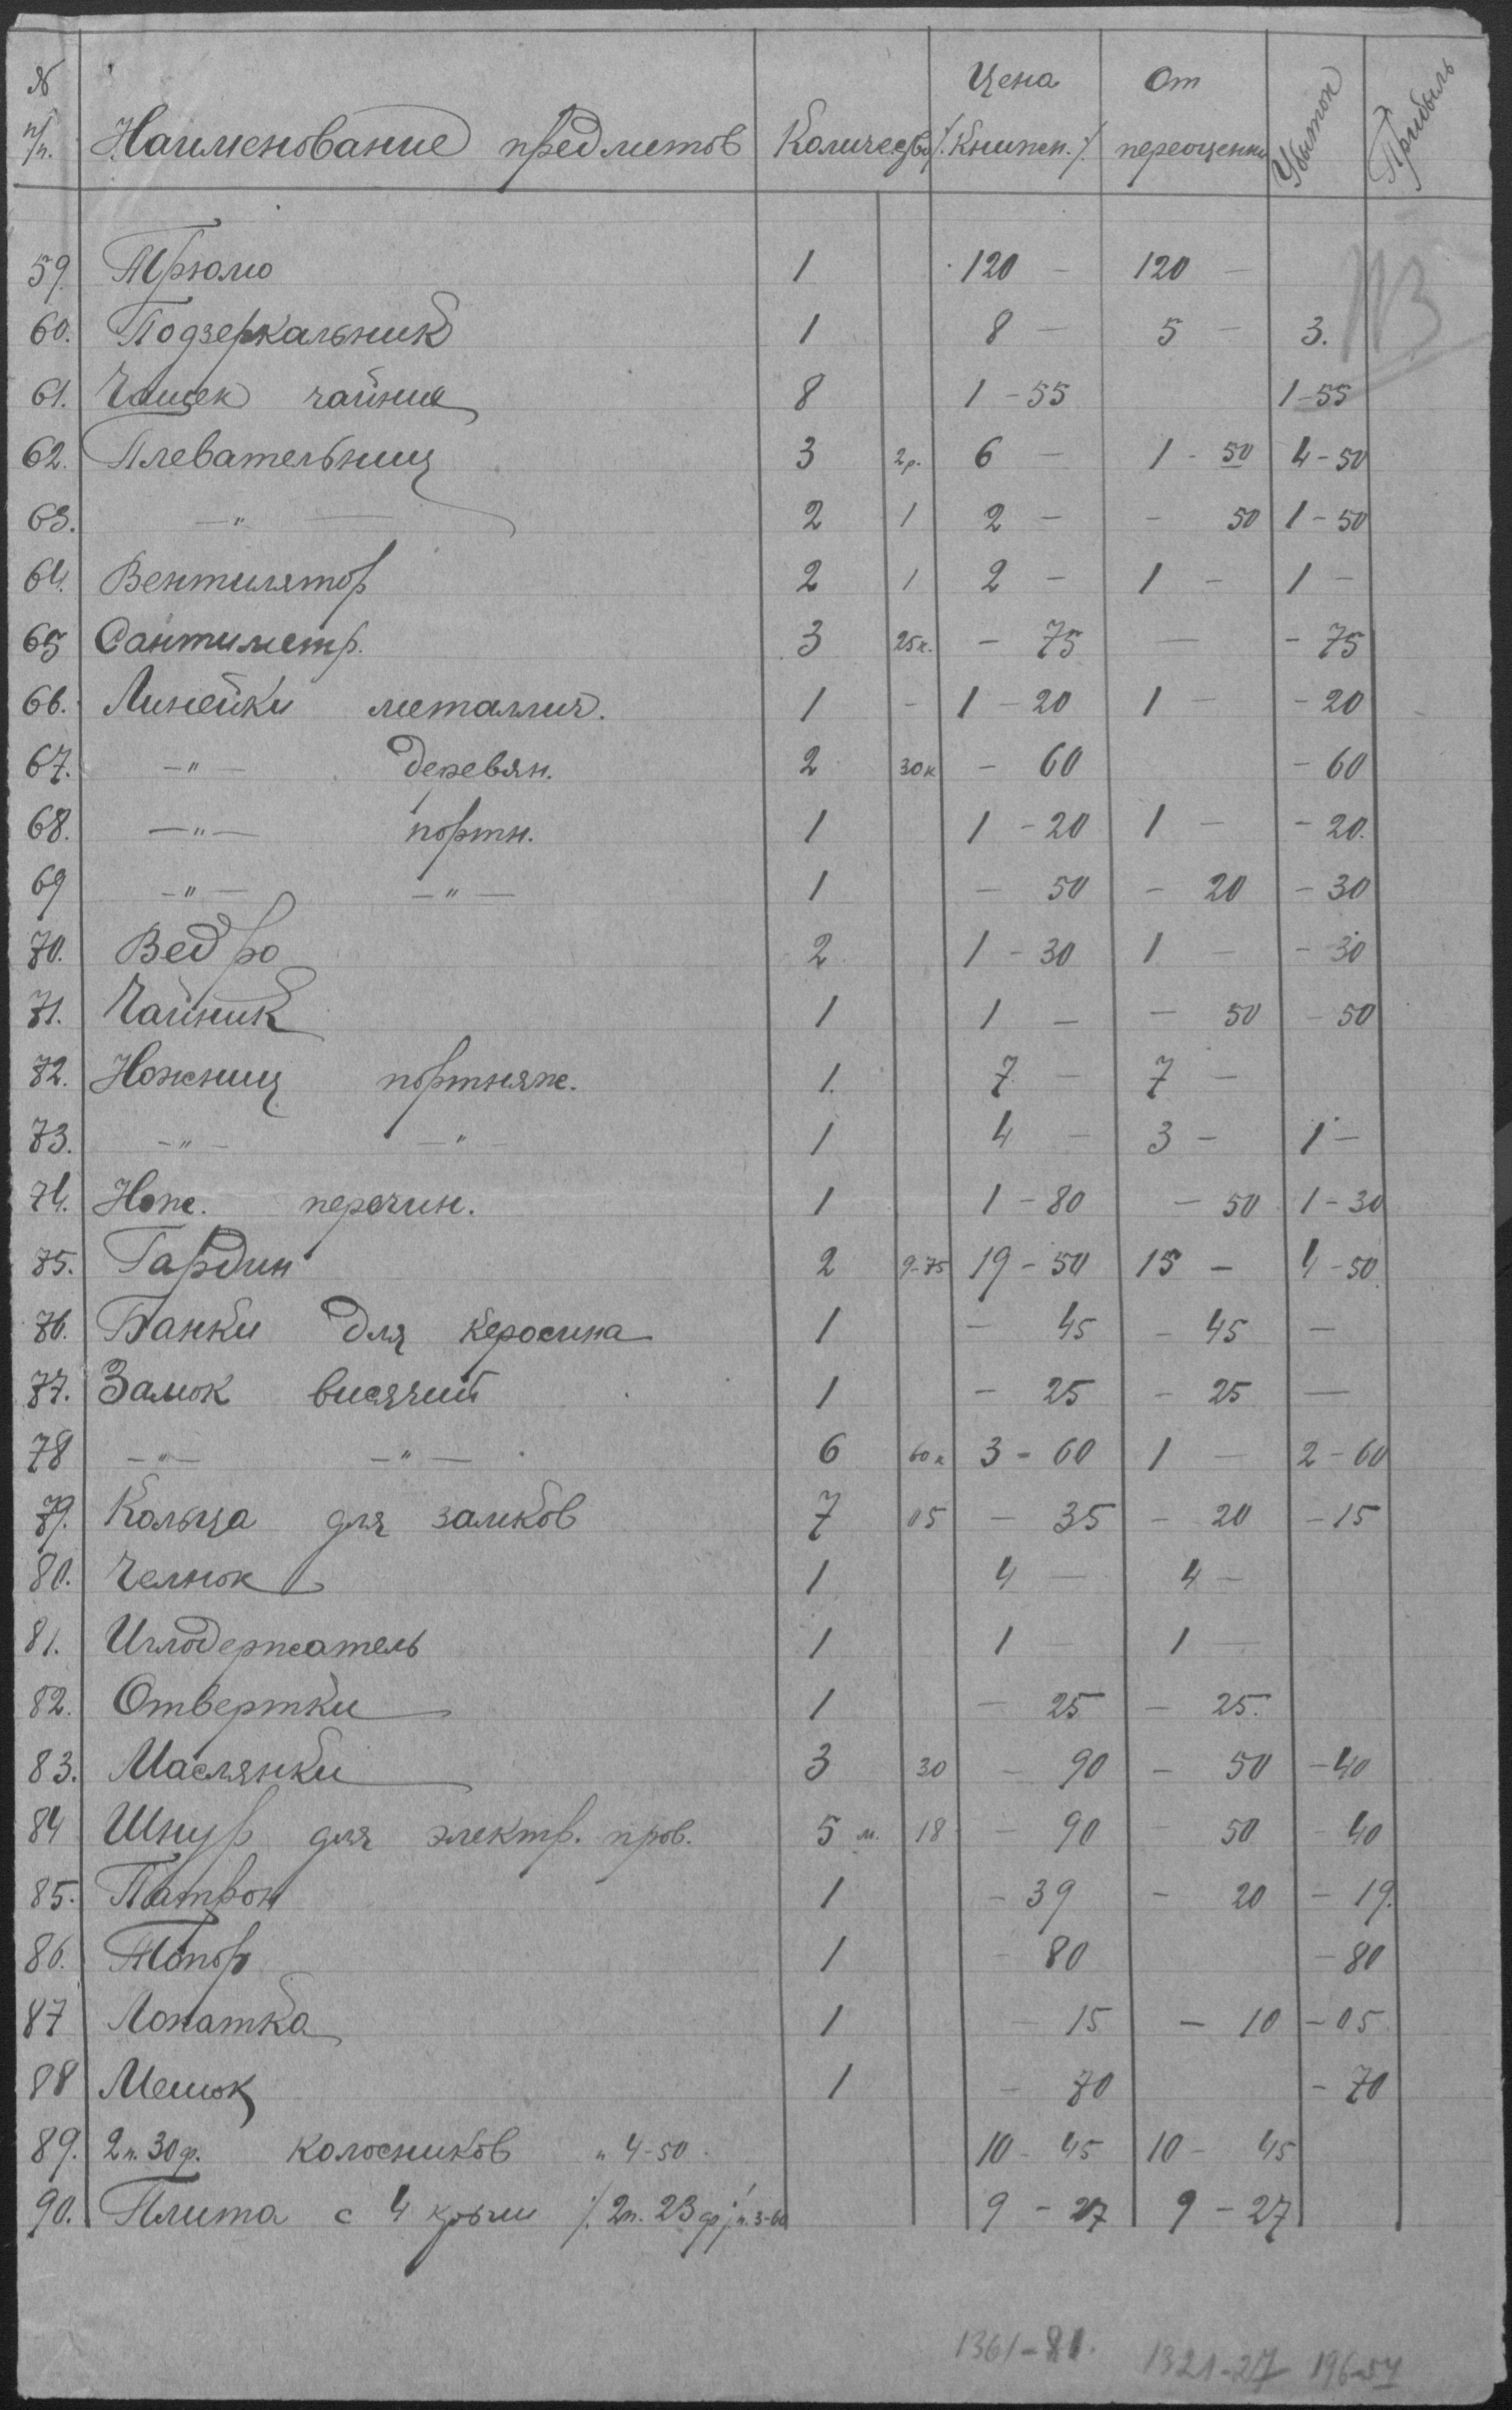 № п/п. Наименование предметов Количество Цена /.Книжн./. От переоценки Убыток Прибыль
113
59. Трюмо 1 120 - 120 -
60. Подзеркальник 1 8 - 5 - 3.
61. Чашек чайных 8 1-55 1-55
62. Плевательниц 3 2р. 6 - 1-50 4-50
63. -"- 2 1 2 - - 50 1-50
64. Вентилятор 2 1 2 - 1 - 1 -
65 Сантиметр. 3 25к. - 75 - - 75
66. Линейки металлич. 1 - 1-20 1 - - 20
67. -"- деревян. 2 30к - 60 - 60
68. -"- портн. 1 1-20 1 - - 20.
69 -"- -"- 1 - 50 - 20 - 30
70. Ведро 2 1-30 1 - - 30
71. Чайник 1 1 - - 50 - 50
72. Ножниц портняж. 1. 7 - 7 -
73. -"- -"- 1 4 - 3 - 1 -
74. Нож. перочин. 1 1-80 - 50 1-30
75. Гардин 2 9-75 19-50 15 - 4-50
76. Банки для керосина 1 - 45 - 45 -
77. Замок висячий 1 - 25 - 25 -
78 -"- -"- 6 60к 3-60 1 - 2-60
79. Кольца для замков 7 05 - 35 - 20 - 15
80. Челнок 1 4 - 4 -
81. Иглодержатель 1 1 1 -
82. Отвертки 1 - 25 - 25.
83. Маслянки 3 30 - 90 - 50 - 40
84 Шнур для электр. пров. 5 м. 18 - 90 - 50 - 40
85. Патрон 1 - 39 - 20 - 19.
86. Топор 1 - 80 - 80
87 Лопатка 1 - 15 - 10 - 05
88 Мешок 1 - 70 - 70
89. 2п. 30ф. колосников " 4-50. 10-45 10-45
90. Плита с 4 /. 2п. 23ф/. п. 3-60 9-27 9-27
1361-81. 1321-27 196-54